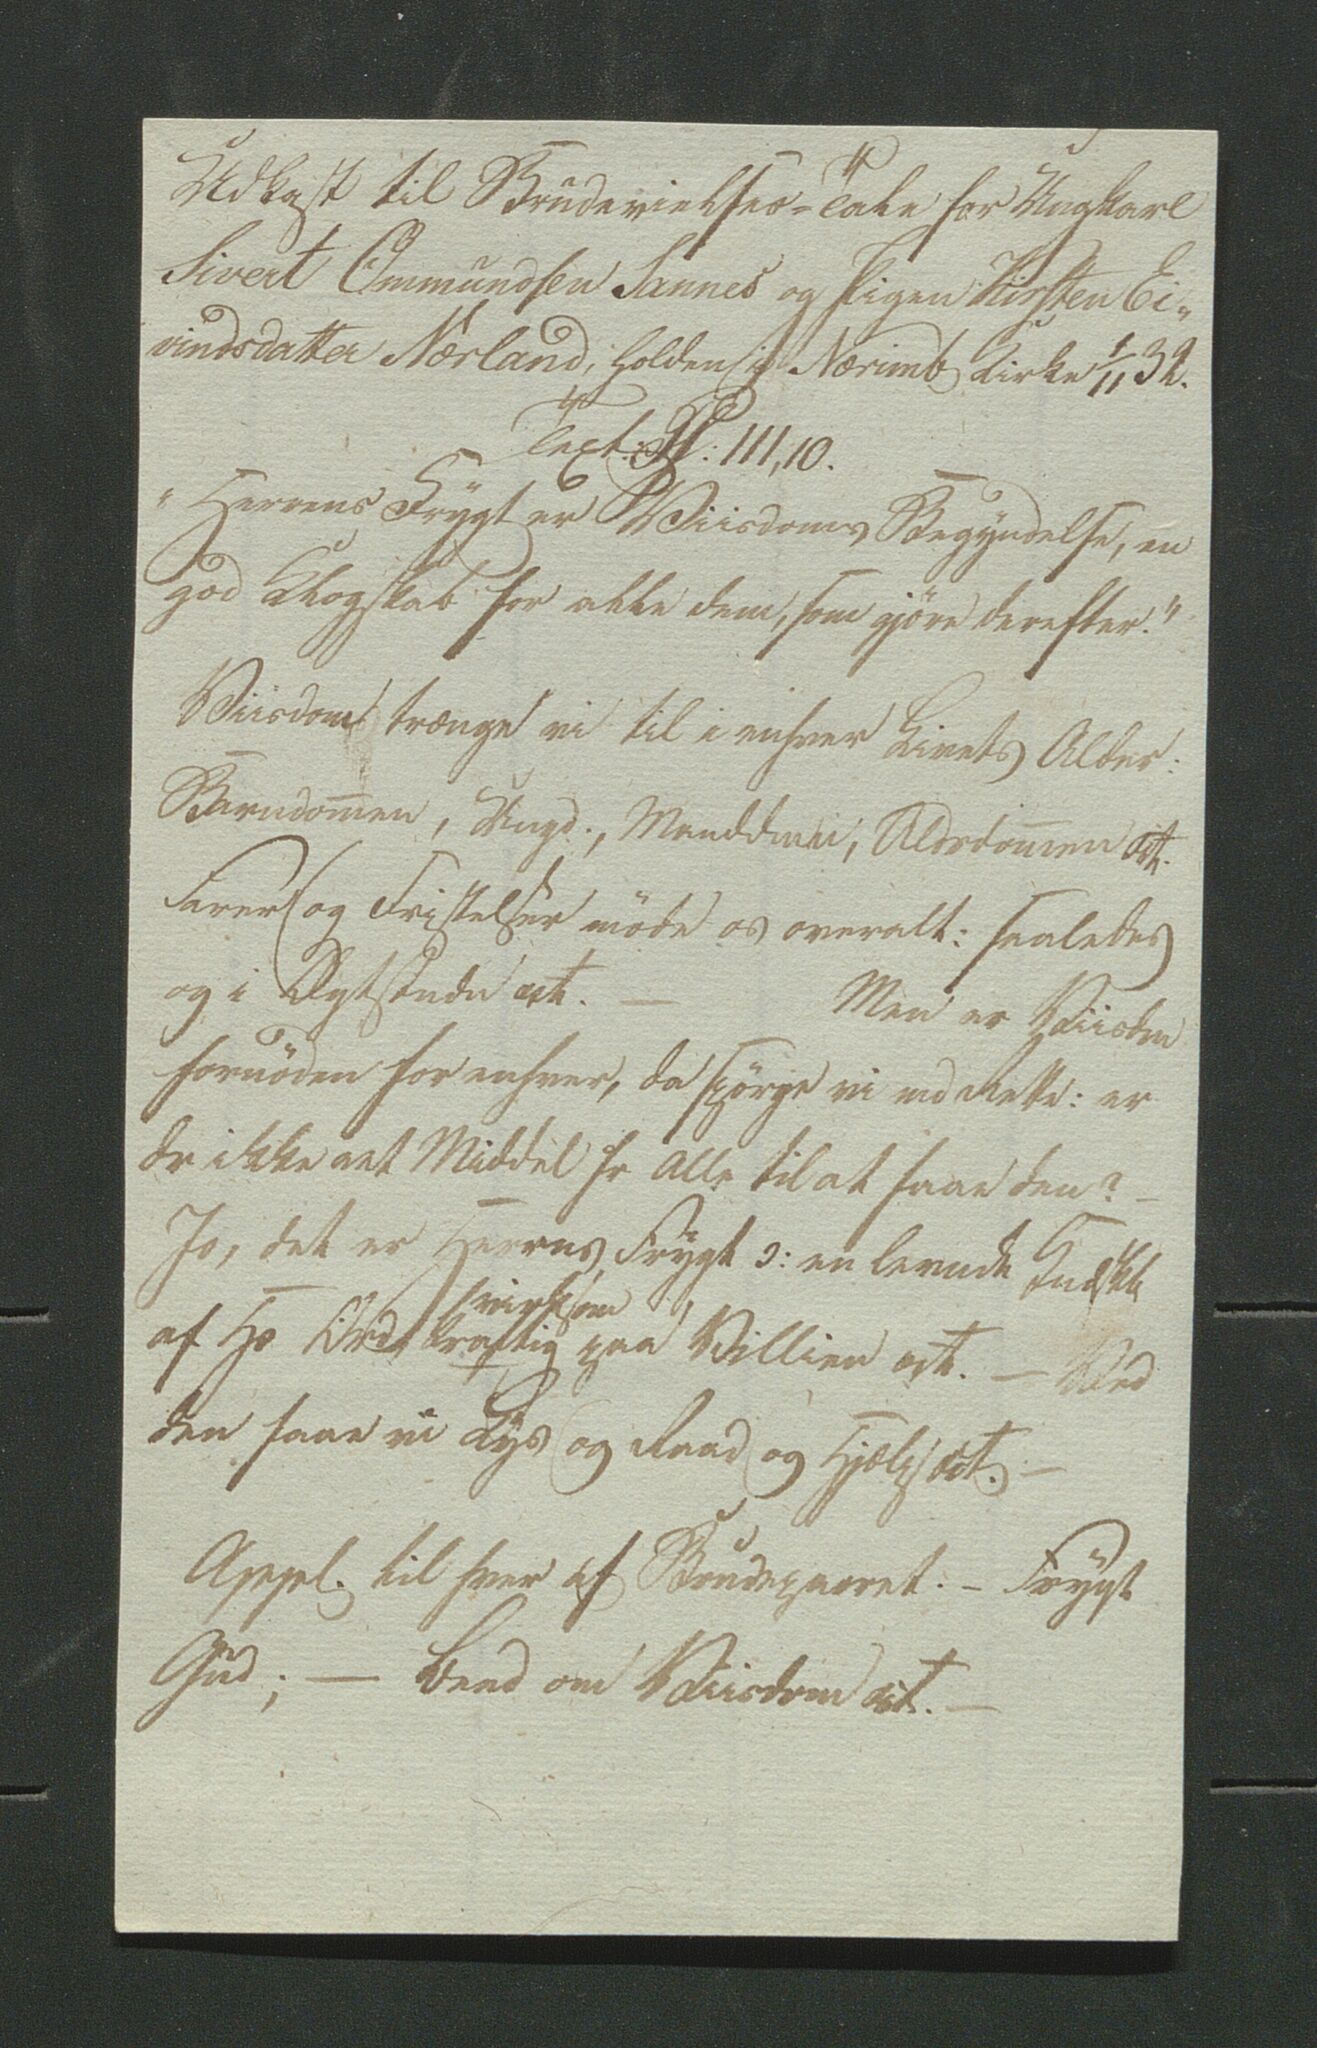 Udkast til Brudevielses-Tale for Ungkarl
Sivert Ommundsen Sannes og Pigen Kirsten Ei-
vindsdatter Nærland, holden i Nærimb Kirke 1/11 32.
Text: Ps: 111, 10.
"Herrens Frygt er Viisdoms Begyndelse, en
god Klogskab for alle dem, som gjöre derefter."
Viisdom trænge vi til i enhver Livets Alder:
Barndom̅en, Ungd., Manddmen, Alderdom̅en etc.
Farer og Fristelser möde os overalt: saaledes
og i Ægtstanden etc. — Men er Viisdm
fornöden for enhver, da spörge vi md Rette: er
dr ikke aet Middel fr Alle til at faae den? —
Jo, det er Herrns Frygt ɔ: en levnde
virksom
af Hs Ord, kraftig paa Villien etc. — Ved
den faae vi Lys og Raad og Hjælp etc. —
Appl. til hver af Brudeparret. — Frygt
Gud; — beed om Viisdom etc. —